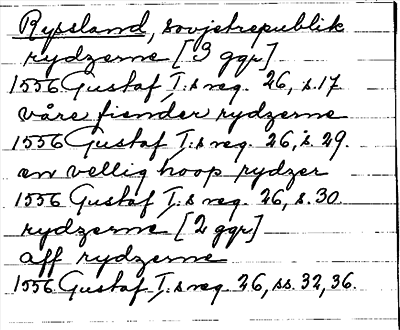 Ryssland, sovjetrepublik
rydzerne [3 ggr]
1556 Gustaf I:s reg. 26, s. 17
våre fiender rydzerne
1556 Gustaf I:s reg. 26, s. 29.
en vellig hoop rydzer
1556 Gustaf I:s reg. 26, s. 30.
rydzerne [2 ggr]
aff rydzerne
1556 Gustaf I:s reg. 26, ss. 32, 36.